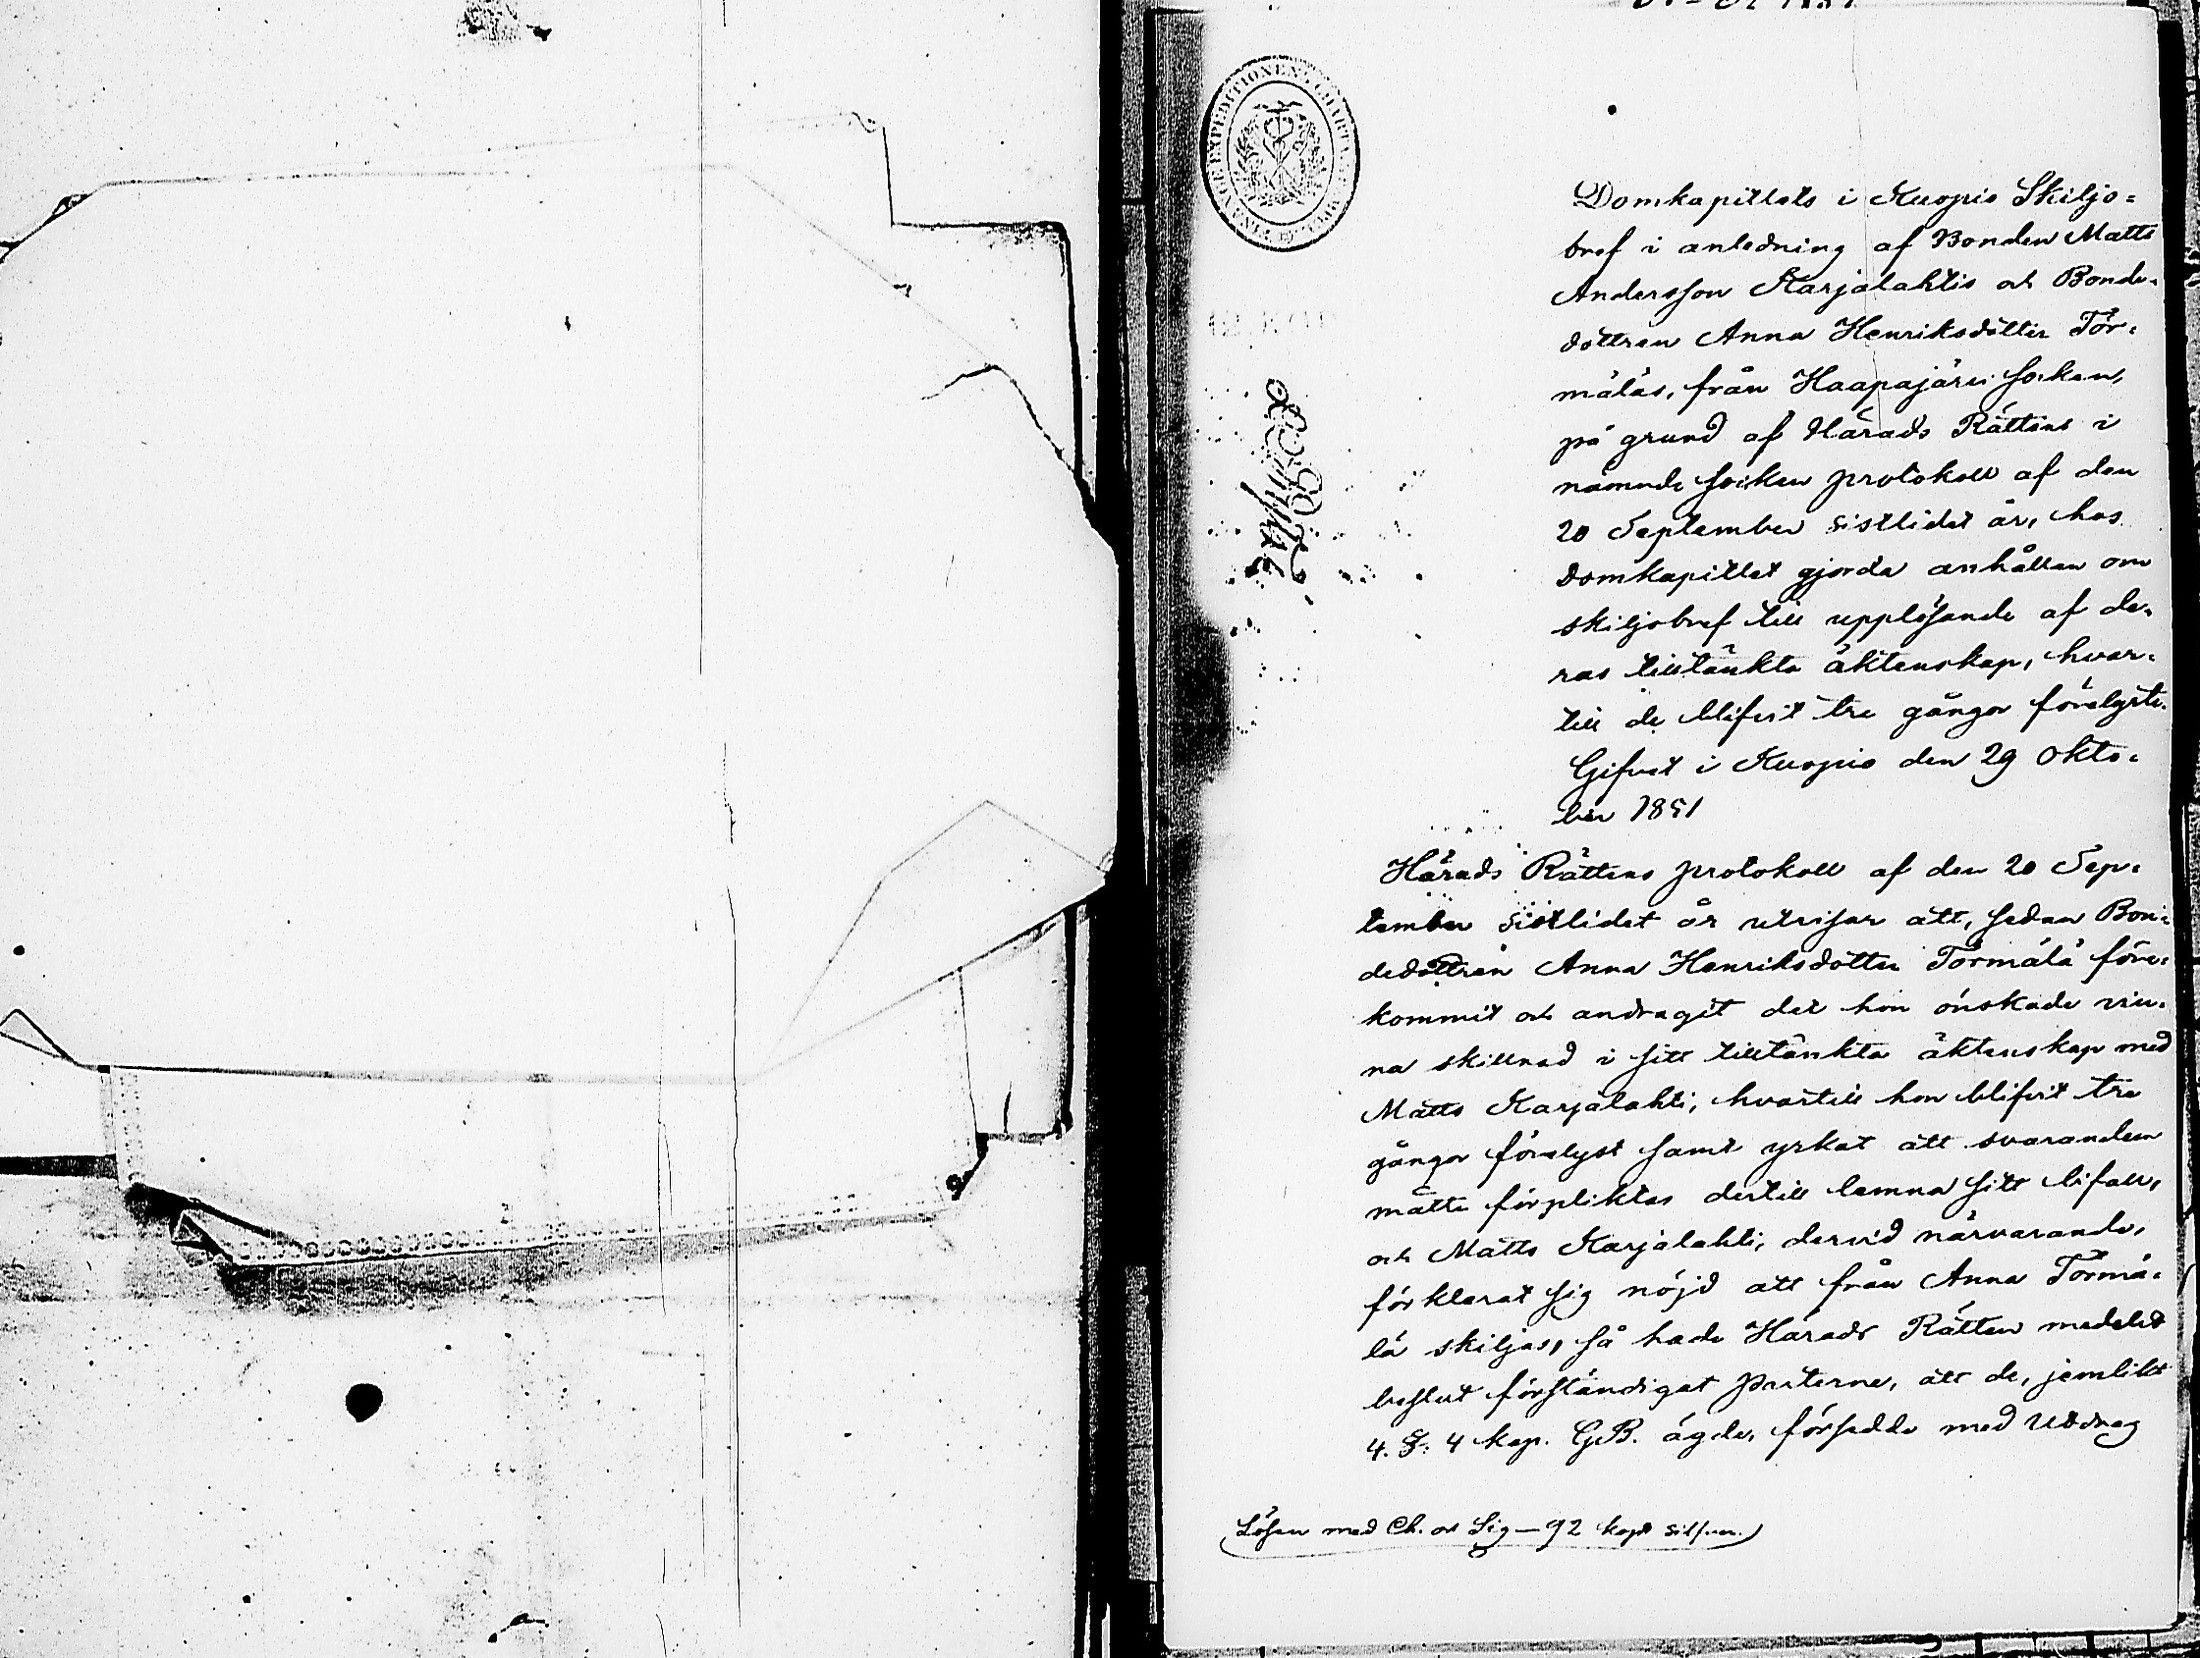 Domkapitlets i Kuopio Skiljo=
bref i anledning af Bonden Matts
Andersson Karjalahtis och Bonde=
dottren Anna Henriksdotter Tör=
mäläs, från Haapajärvi socken,
på grund af Härads Rättens i
nämnde socken protokoll af den
20 September sistlidet år, hos
Domkapitlet gjorda anhållan om
skiljobref till upplösande af de=
ras tilltänkta äktenskap, hvar=
till de blifvit tre gånger förelyste.
Gifvet i Kuopio den 29 Okto=
ber 1851
Härads Rättens protokoll af den 20 Sep=
tember sistlidet år utvisar att, sedan Bon=
dedottren Anna Henriksdotter Törmälä före=
kommit och andragit det hon önskade vin=
na skillnad i sitt tilltänkta äktenskap med
Matts Karjalahti, hvartill hon blifvit tre
gånger förelyst samt yrkat att svaranden
måtte förpliktas dertill lemna sitt bifall,
och Matts Karjalahti, dervid närvarande,
förklarat sig nöjd att från Anna Törmä=
lä skiljas, så hade Härads Rätten medelst
beslut förständigat parterne, att de, jemlikt
4. §. 4 kap. G.B. ägde, försedde med Utdrag
Lösen med Ch. och Sig — 92 kop silfver.